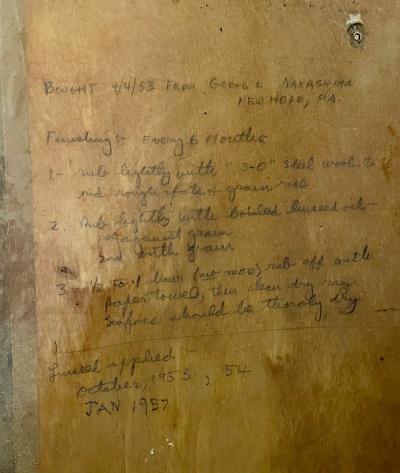 BOUGHT 4/4/53 FROM GEORGE NAKASHIMA
NEW HOPE, PA.
Finishing:- Every 6 Months
1.- rub lightly with "3-0" steel wool to
rid rough spots & grain rise
2. Rub lightly with boiled linseed oil-
against grain
2nd with grain
3. ½ to 1 hour (no more) rub off with
paper towel, then clean dry rag.
Surface should be thoroly dry
Linseed applied
October, 1953, '54
JAN 1957